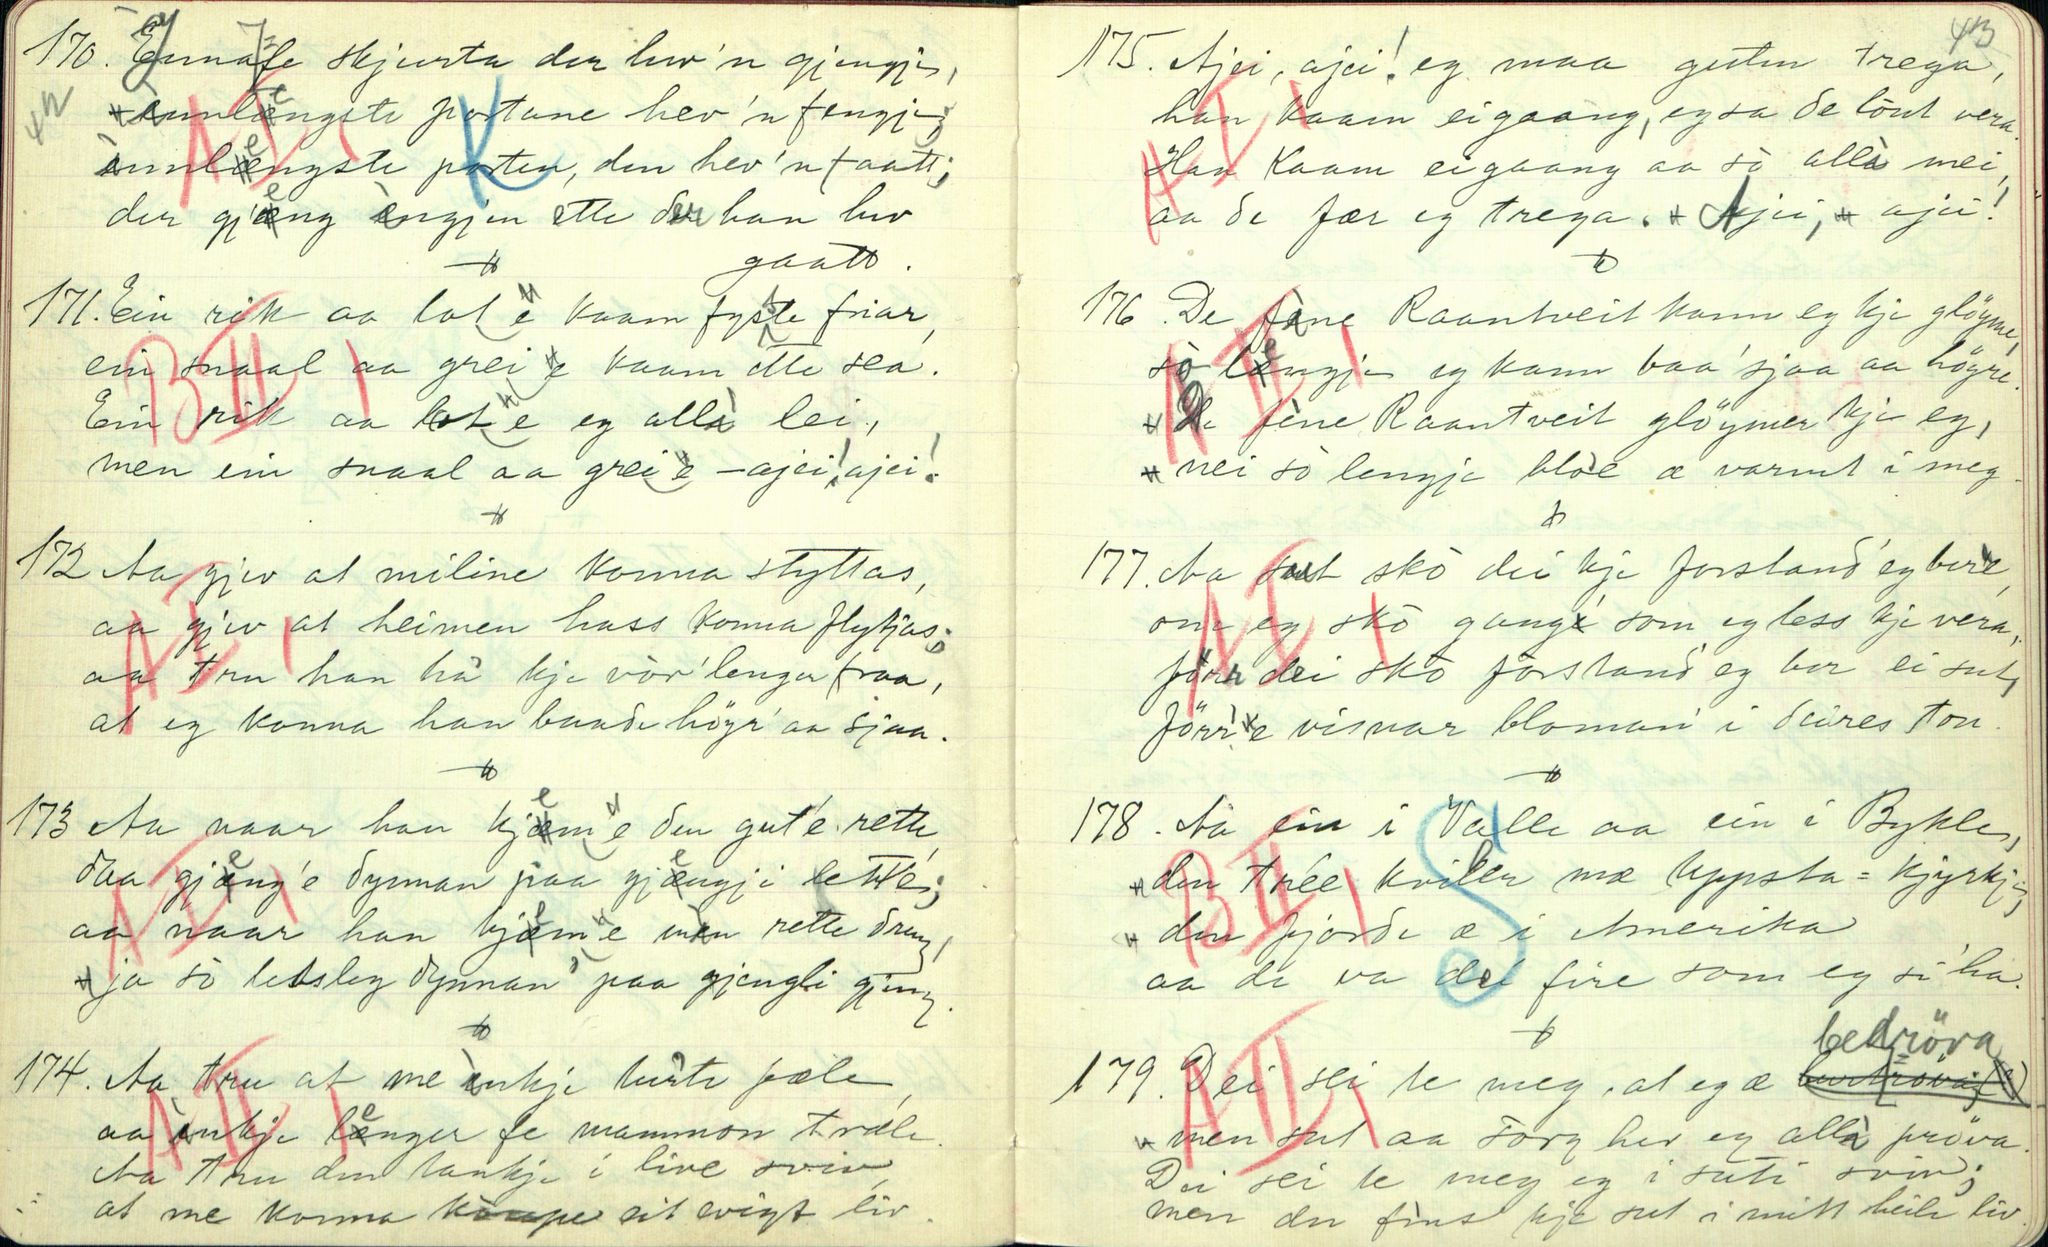 42
170. Ennafe skjurta der hev'n gjengje,
ennlengste portane hev'n fengje;
ennlengste porten, den hev'n faatt;
der gjeng ingjen ette der han hev
gaatt.
171. Ein rik aa lat e kaam fyste friar,
ein snaal aa grei e kaam ette sea.
Ein rik aa lat e eg allà lei,
men ein snaal aa grei e – ajei! ajei!
172 Aa gjev at miline konna styttas,
aa gjev at heimen hass konna flytjas;
aa tru han hà kje vòr' lenger fraa,
at eg konna han baade höyr' aa sjaa.
173 Aa naar han kjem e den gut'e rette,
daa gjeng'e dynnan paa gjengji lette;
aa naar han kjem e men rette dreng,
ja sò letsleg dynnan' paa gjengli gjeng.
174. Aa tru at me inkje turte fæle,
aa inkje lenger fe mammon træle.
Aa tru den tankje i live sviv,
at me konna kaupe eit evigt liv.
43
175. Ajei, ajei! eg maa guten trega,
han kaam eigaang, eg sa de lònt vera.
Han kaam eigaang aa sò allà mei,
aa de fær eg trega. Ajei, ajei!
176. De fine Raantveit kann eg kje glöyme,
sò lengje eg kann baa' sjaa aa högre.
De fine Raantveit glöymer kje eg,
nei sò lengje bloe æ varmt i meg.
177. Aa sut skò dei kje forstand' eg bere,
om eg skò gange som eg less kje vera,
förr dei skò forstand' eg ber ei sut,
förr'e visnar bloman' i deires ton.
178. Aa ein i Valle aa ein i Bykle,
den tree kviler mæ Uppsta=kjyrkje,
den fjorde æ i Amerika
aa de va dei fire som eg si' ha.
179. Dei sei te meg, at eg æ bedröva
men sut aa sorg hev eg allà pröva.
Dei sei te meg eg i suti sviv;
men der fins kje sut i mitt heile liv.